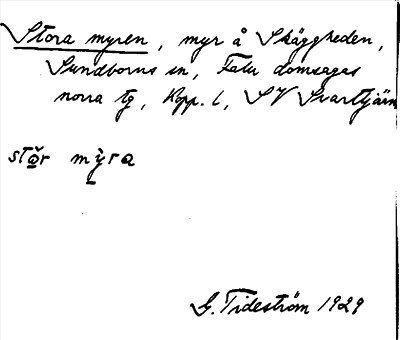 Stora myren, myr å Skäggheden,
Sundborns sn, Falu domsagas
norra tg, Kopp. l, SV Svarttjärn
stǫ̌r mỳra
G. Tideström 1929